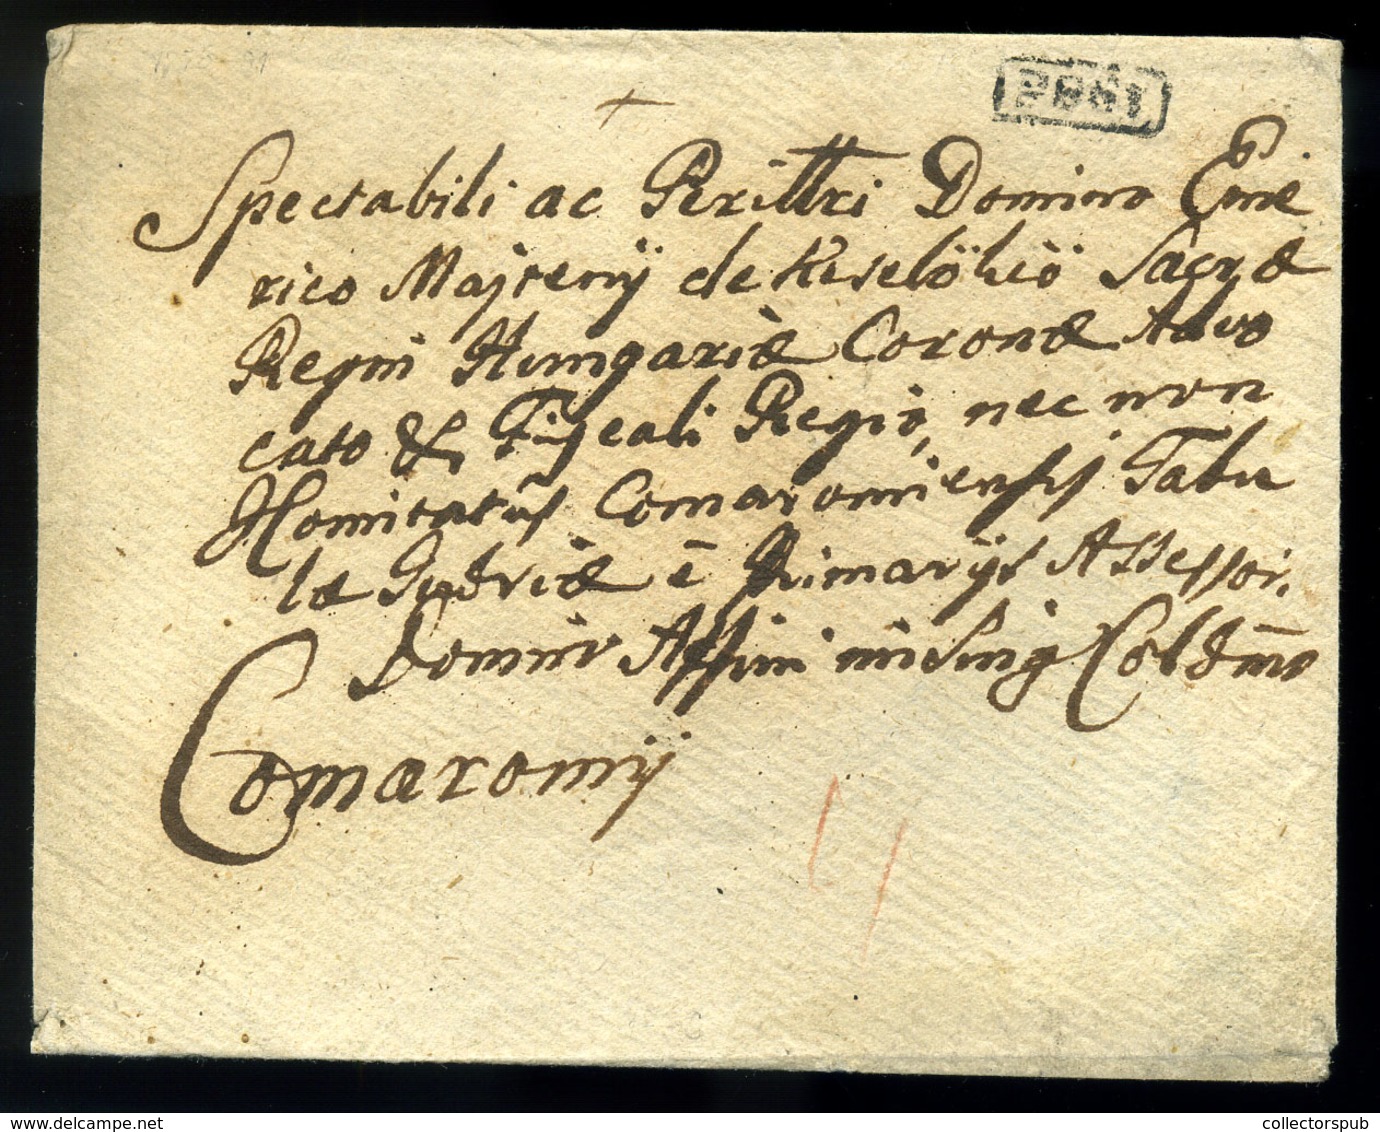 PEST
Spectabili ac Perilltri Domino Eme
rico Majteny de Keselőkeö Sacræ
Regni Hungariæ Coronæ Advo
cato & Fiscali Regio, nec non
Comitatus Comaromiensis Tabu
læ Judriæ e Primariis Assessori,
Domino Affini mihi Sing Coldmo
Comaromij
collectorspub.com